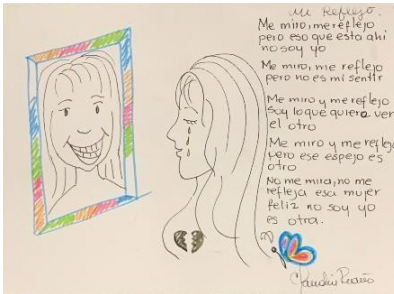 Mi Reflejo.
Me miro, me reflejo
pero eso que esta ahi
no soy yo
Me miro, me reflejo
pero no es mi sentir
Me miro y me reflejo
soy lo que quiera ver
el otro
Me miro y me reflejo
pero ese espejo es
otro
No me mira, no me
refleja esa mujer
feliz no soy yo
es otra.
Claudia